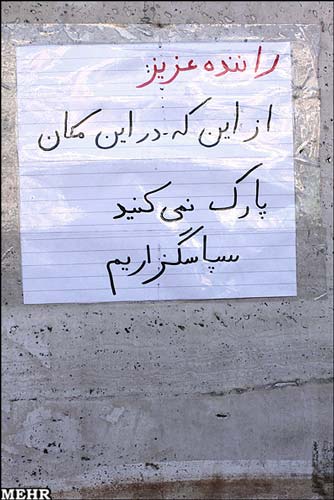 راننده عزیز
از این که در این مکان
پارک نمی کنید
سپاسگزاریم
MEHR